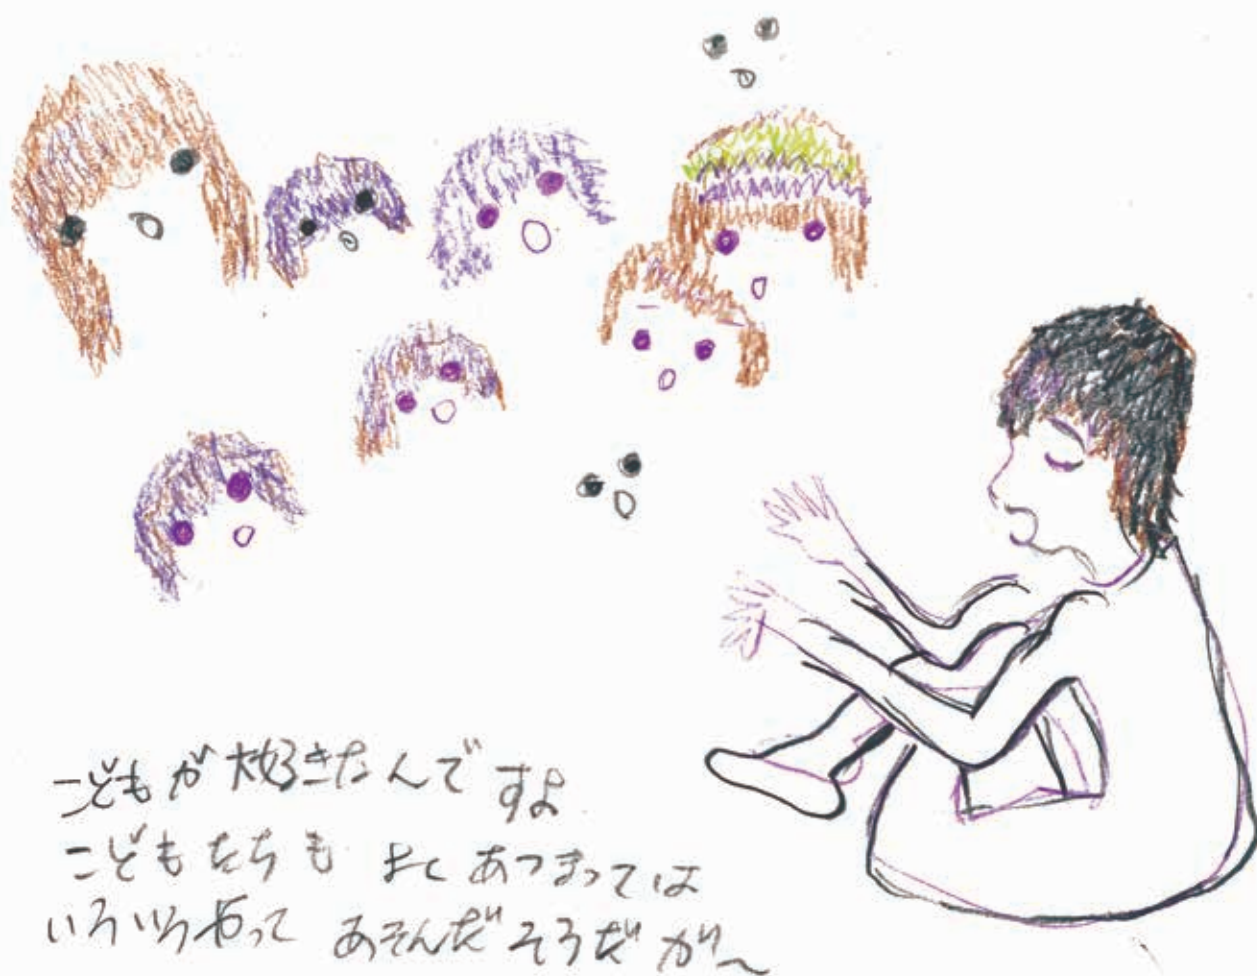 こどもが大好きなんですよ
こどもたちも よく あつまっては
いろいろやって あそんだそうだが〜